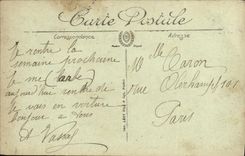 Carte Postale
Correspondance
Adresse
Je rentre la
semaine prochaine
je me
aujourd'hui rentre de
je vais en voiture
Bonjour à vous
A. Vassal
Mlle Caron
rue Oberkampf 101
Paris